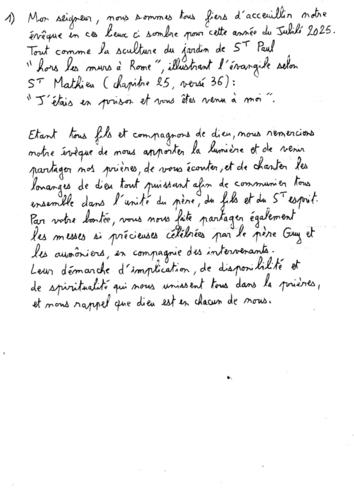 1) Mon seigneur, nous sommes tous fiers d'acceuillir notre
évêque en ces lieux si sombre pour cette année du Jubilé 2025.
Tout comme la sculture du jardin de ST Paul
"hors les murs à Rome", illustrant l'évangile selon
ST Mathieu (chapitre 25, versé 36):
"J'étais en prison et vous êtes venu à moi".
Etant tous fils et compagnons de dieu, nous remercions
notre évêque de nous apporter la lumière et de venir
partager nos prières, de vous écouter, et de chanter les
louanges de dieu tout puissant afin de communier tous
ensemble dans l'unité du père, du fils et du ST esprit.
Par votre bonté, vous nous faite partager également
les messes si précieuses célébrées par le père Guy et
les aumôniers, en compagnie des intervenants.
Leur démarche d'implication, de disponibilité et
de spiritualité qui nous unissent tous dans la prières,
et nous rappel que dieu est en chacun de nous.